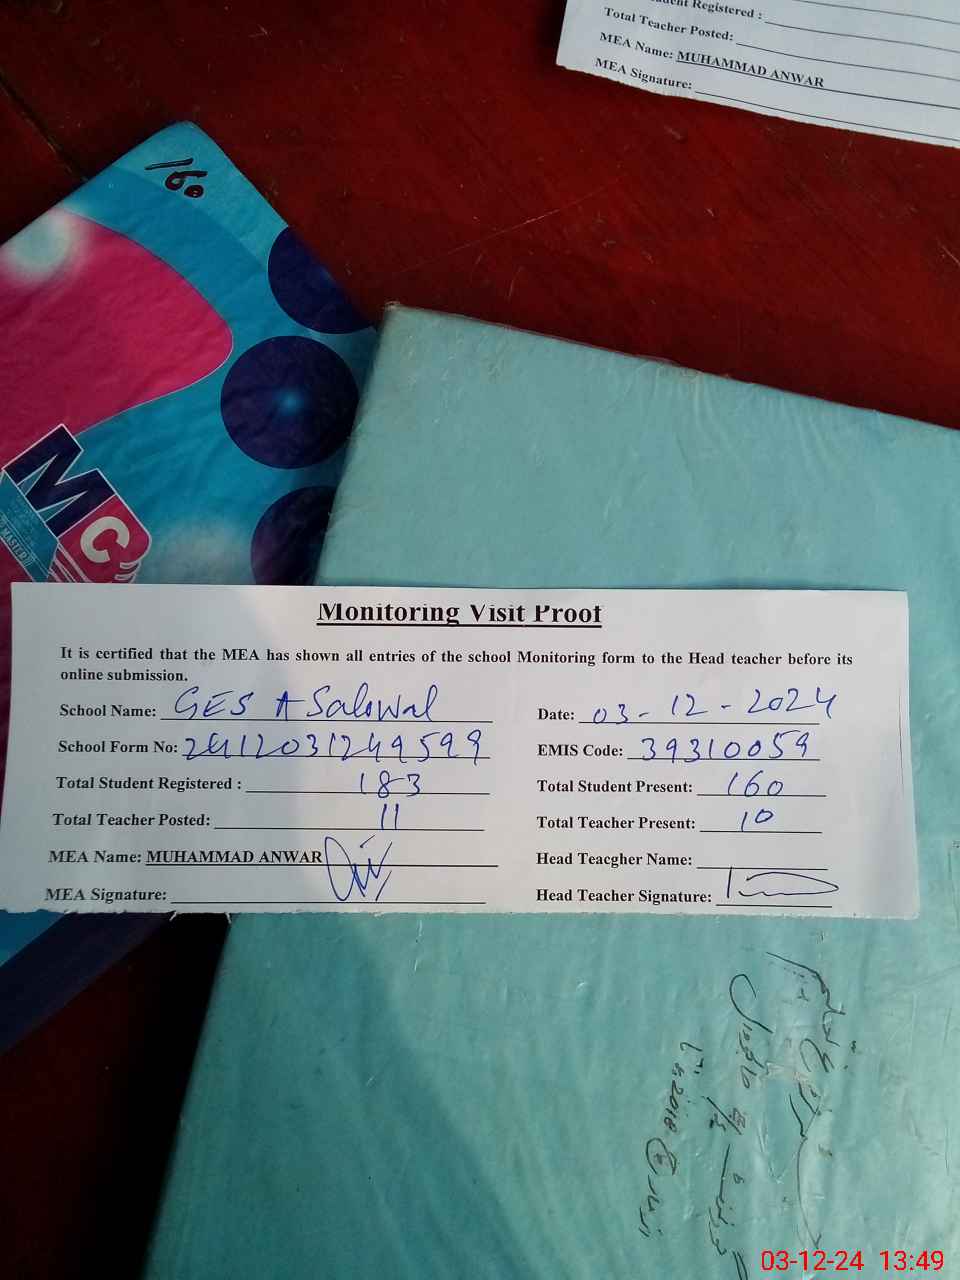 Student Registered :
Total Teacher Posted:
MEA Name: MUHAMMAD ANWAR
MEA Signature:
160
MC
MASTER
Monitoring Visit Proof
It is certified that the MEA has shown all entries of the school Monitoring form to the Head teacher before its
online submission.
School Name: GES A Salowal Date: 03-12-2024
School Form No: 2412031249599 EMIS Code: 39310059
Total Student Registered : 183 Total Student Present: 160
Total Teacher Posted: 11 Total Teacher Present: 10
MEA Name: MUHAMMAD ANWAR Head Teacgher Name:
MEA Signature: Head Teacher Signature:
2018
03-12-24 13:49